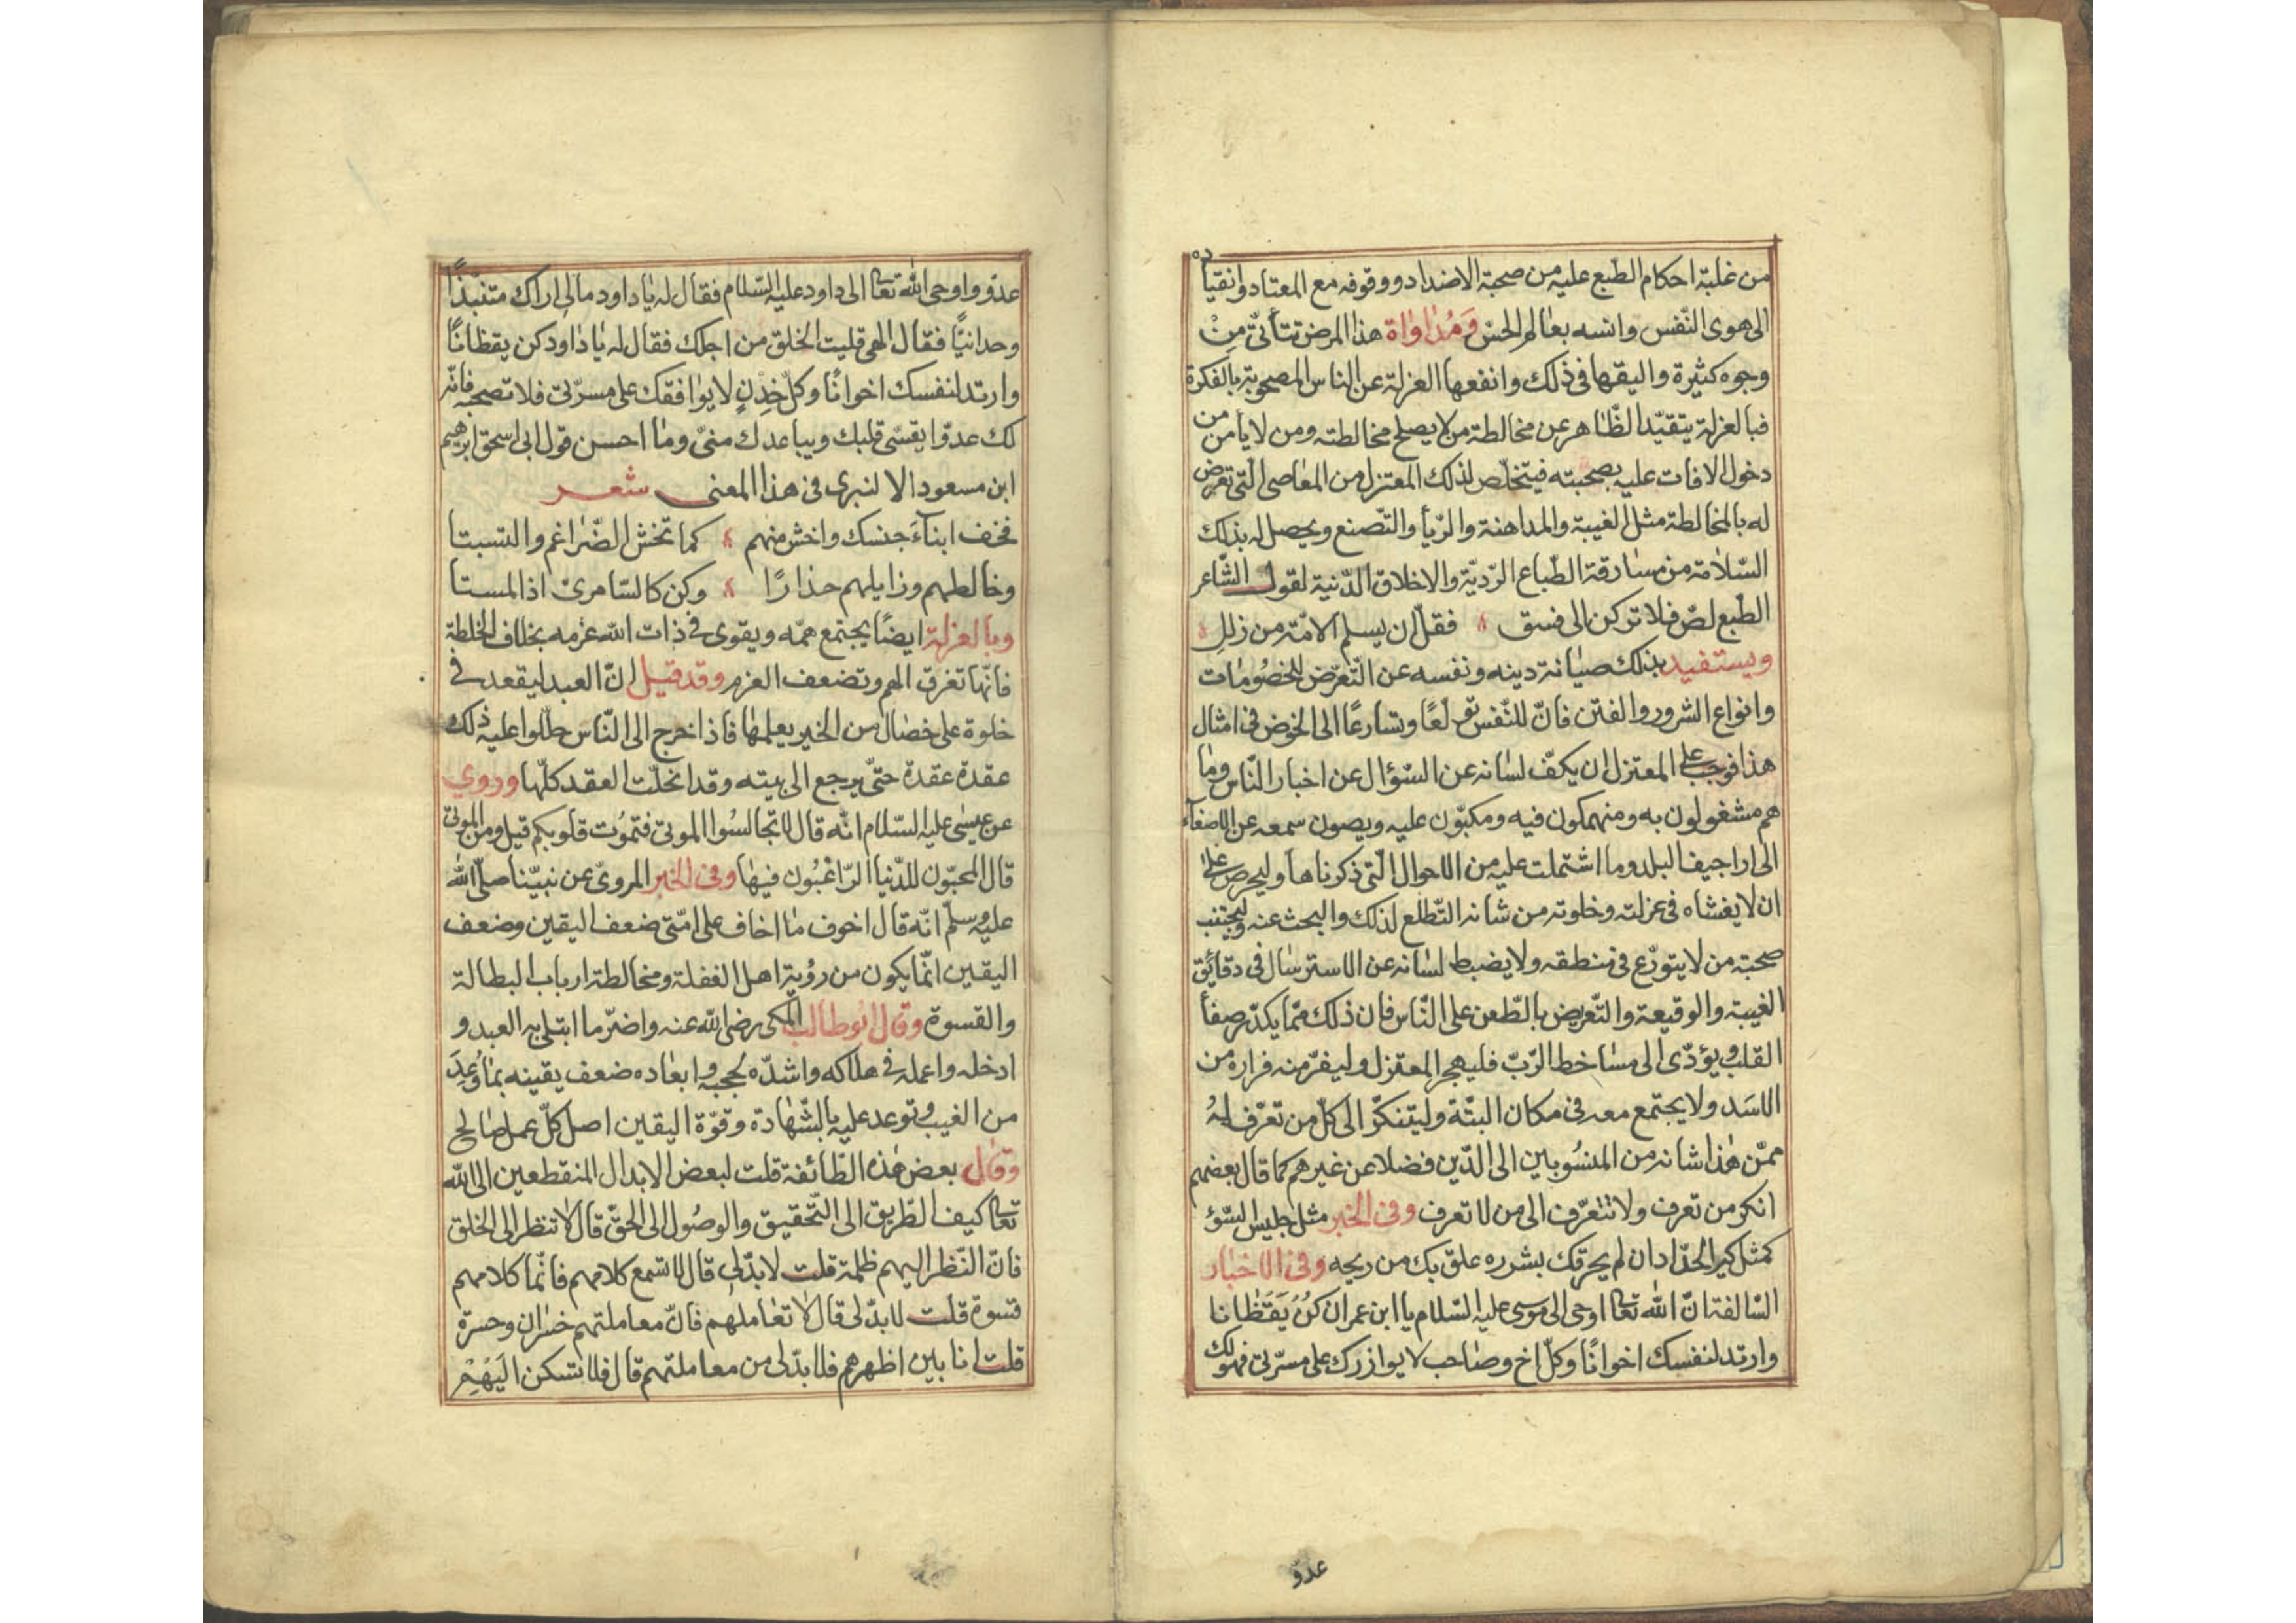 من غلبة احكام الطّبع عليه من صحبة الاضداد ووقوفه مع المعتاد وانقياده
الى هوى النّفس وانسه بعالم الحسّ وَمُدٰاوٰاة هذا المرض تتأتّى مِنْ
وجوه كثيرة واليقها فى ذلك وانفعها العزلة عن الناس المصحوبة بالفكرة
فبالعزلة يتقيّد الظّاهر عن مخالطة من لا يصلح مخالطته ومن لا يأمن من
دخول الافات عليه بصحبته فيتخلّص لذلك المعتزل من المعاصى الّتى تعرض
له بالمخالطة مثل الغيبة والمداهنة والرّيأ والتّصنع ويحصل له بذلك
السّلامة من مسارقة الطّباع الرّديّة والاخلاق الدّنية لقول الشّاعر
الطّبع لصّ فلا تركن الى فسق فقلّ ان يسلم الامّة من زلل
ويستفيد بذلك صيانة دينه ونفسه عن التّعرّض للخصُومات
وانواع الشرور والفتن فانّ للنّفس تولّعًا وتسارعًا الى الخوض فى امثال
هذا فوجب على المعتزل ان يكفّ لسانه عن السّؤال عن اخبار النّاس وما
هم مشغولون به ومنهمكون فيه ومكبّون عليه ويصون سمعه عن الاصغآء
الى اراجيف البلد وما اشتملت عليه من الاحوال الّتى ذكرناها وليحرص على
ان لا يغشاه فى عزلته وخلوته من شانه التّطلّع لذلك والبحث عنه وليجتنب
صحبة من لا يتورّع فى منطقه ولا يضبط لسانه عن الاسترسال فى دقايق
الغيبة والوقيعة والتّعريض بالطّعن على النّاس فان ذلك ممّا يكدّر صفأ
القلب ويؤدّى الى مساخط الرّبّ فليهجر المعتزل وليفرّ منه فراره من
الاسَد ولا يجتمع معه فى مكان البتّة وليتنكّر الى كلّ من تعرّف له
ممّن هٰذا شانه من المنسُوبين الى الدّين فضلا عن غيرهم كما قال بعضهم
انكر من تعرف ولا تتعرّف الى من لا تعرف وفى الخبر مثل جليس السّؤ
كمثل كير الحدّاد ان لم يحرقك بشرره علق بك من ريحه وفى الاخبار
السّالفة انّ الله تعا اوحى الى موسى عليه السّلام يا ابن عمران كنُ يَقُظانا
وارتد لنفسك اخوانًا وكلّ اخ وصاحب لا يوازرك على مسرّتى فهو لك
عدوّ
عدوّ واوحى الله تعا الى داود عليه السّلام فقال له يا داود مالى اراك متنبّذًا
وحدانيًّا فقال الهى قليت الخلق من اجلك فقال له يا داود كن يقظانًا
وارتد لنفسك اخوانًا وكلّ خِدْنٍ لا يوافقك على مسرّتى فلا تصحبه فانّه
لك عدوّا يقسّى قلبك ويباعدك منّى وما احسن قول ابى اسحق ابرهيم
ابن مسعود الالنبرى فى هذا المعنى شعر
فخف ابنآءَ جنسك واخش منهم كما تخش الضّراغم والسّبتا
وخالطهم وزايلهم حذارًا وكن كالسّامرىّ اذا لمستا
وبالعزلة ايضًا يجتمع همّه ويقوى فى ذات الله عزمه بخلاف الخلطة
فانّها تفرق الهم وتضعف العزم وقد قيل انّ العبد ليقعد فى
خلوة على خصال من الخير يعلمها فاذا خرج الى النّاس حلّلوا عليه ذلك
عقدة عقدة حتّى يرجع الى بيته وقد انحلّت العقد كلّها وروي
عن عيسى عليه السّلام انّه قال لا تجالسُوا الموتى فتموُت قلوبكم قيل ومن الموتى
قال المحبّون للدّنيا الرّاغبُون فيها وفى الخبر المروىّ عن نبيّنا صلّى الله
عليه وسلّم انّه قال اخوف ما اخاف على امّتى ضعف اليقين وضعف
اليقين انّما يكون من رؤية اهل الغفلة ومخالطة ارباب البطالة
والقسوة وقال ابوطالب المكى رضى الله عنه واضرّ ما ابتلى به العبد و
ادخله واعمله فى هلاكه واشدّه لحجبه وابعاده ضعف يقينه بما وُعِدَ
من الغيب وتوعد عليه بالشّهادة وقوّة اليقين اصل كلّ عمل صالح
وقال بعض هذه الطّائفة قلت لبعض الابدال المنقطعين الى الله
تعا كيف الطّريق الى التّحقيق والوصُول الى الحقّ قال لا تنظر الى الخلق
فانّ النّظر اليهم ظلمة قلت لا بدّ لى قال لا تسمع كلامهم فانّما كلامهم
قسوة قلت لا بدّ لى قال لا تعاملهم فانّ معاملتهم خسران وحسرة
قلت انا بين اظهرهم فلا بدّ لى من معاملتهم قال فلا تسكن الَيْهِمْ